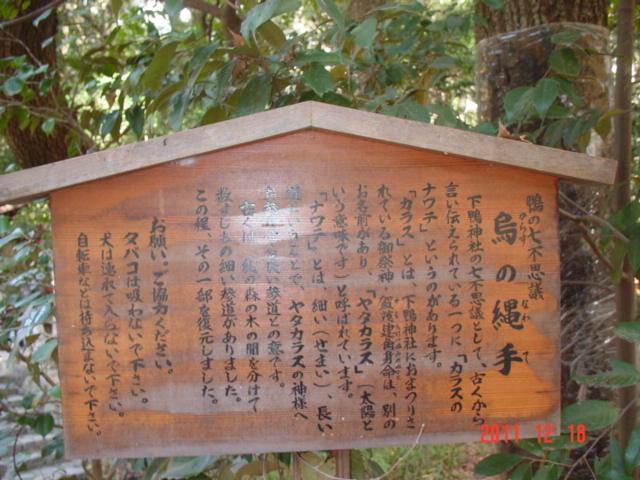 鴨の七不思議
烏の縄手
からす
なわ
て
下鴨神社の七不思議として、古くから
言い伝えられている一つに「カラスの
ナワテ」というのがあります。
「カラス」とは、下鴨神社におまつりさ
れている御祭神 賀茂建角身命は、別の
お名前があり、「ヤタカラス」(太陽と
いう意味です)と呼ばれています。
「ナワテ」とは、細い(せまい)、長い
ということで、ヤタカラスの神様へ
参道との意です。
古くは、糺の森の木の間を分けて
数すじもの細い参道がありました。
この程、その一部を復元しました。
お願い。ご協力ください。
タバコは吸わないで下さい。
犬は連れて入らないで下さい。
自転車などは持ち込まないで下さい。
2011 12 18